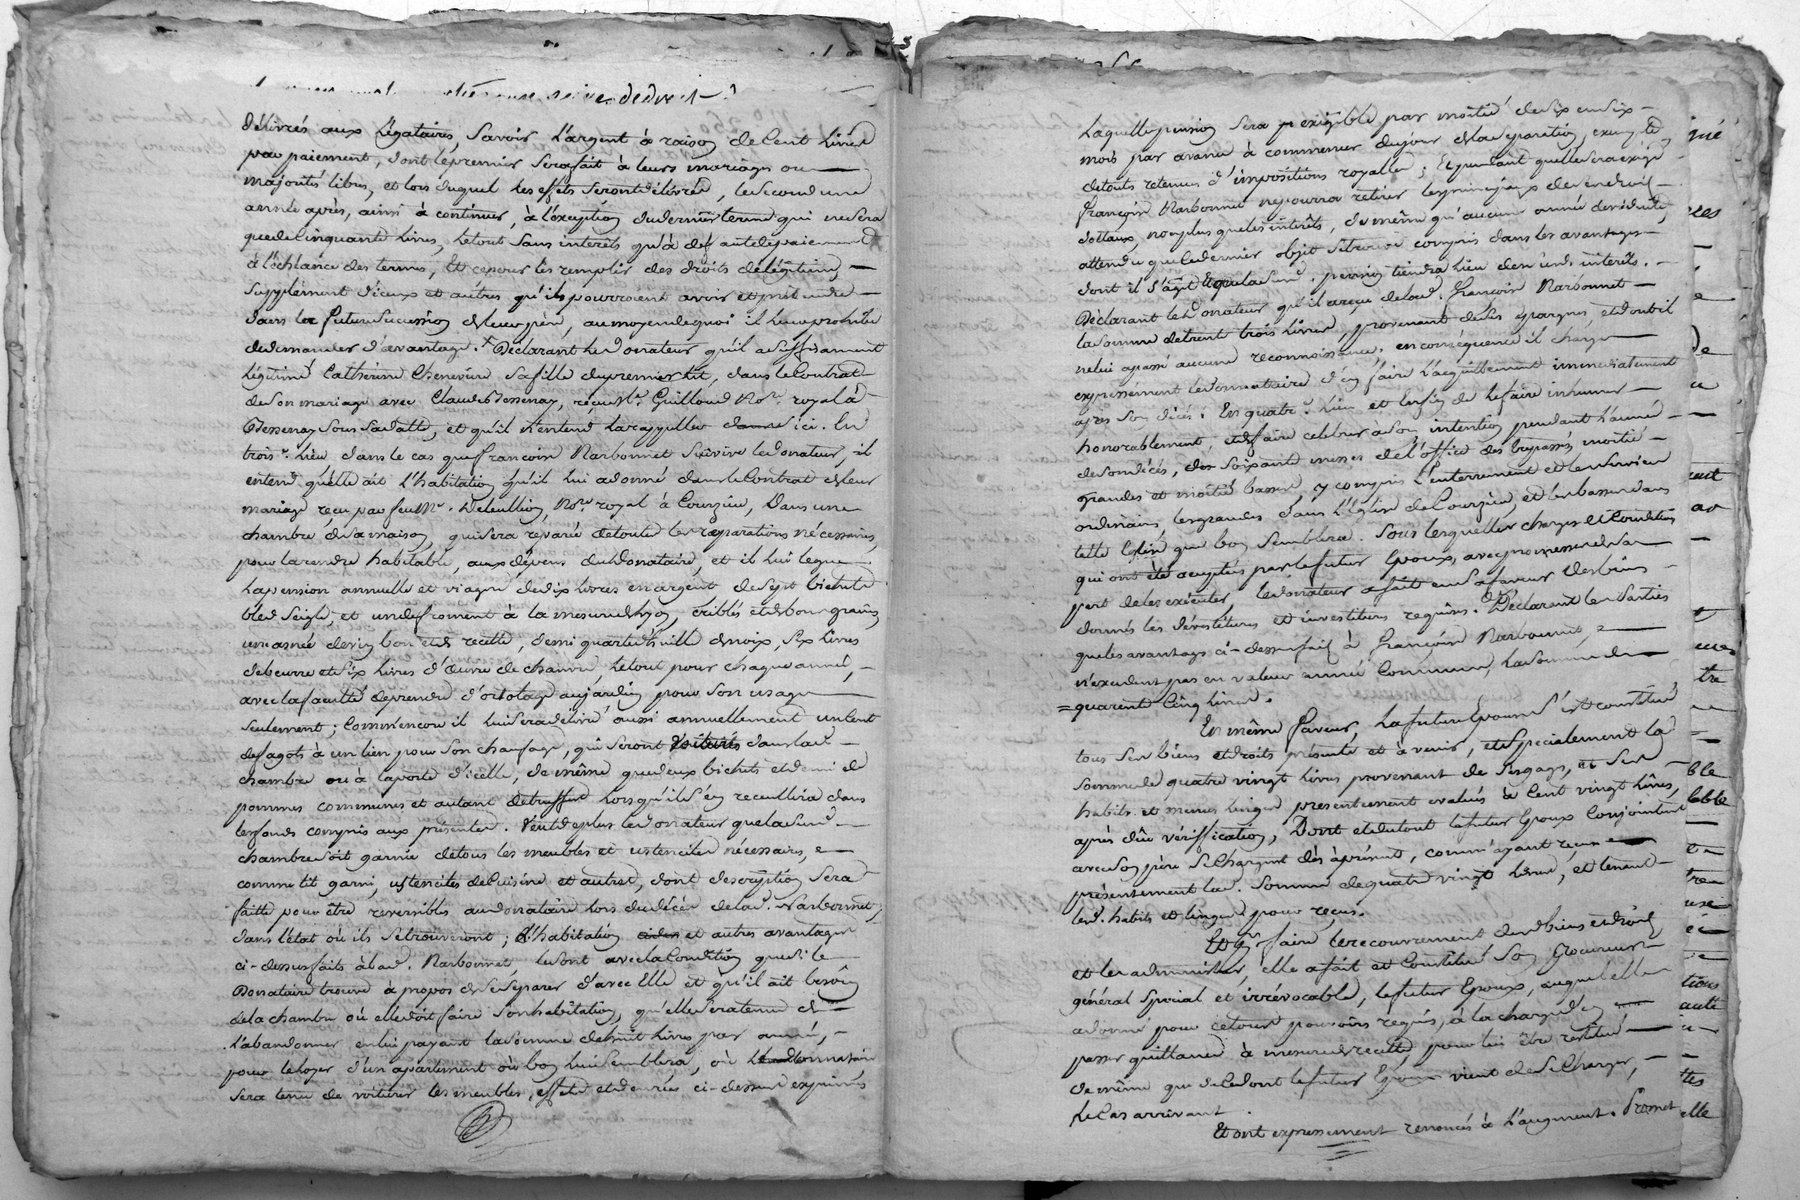 délivrés aux Légataires, Savoir L'argent à raison de Cent Livres
par paiement, dont le premier Sera fait à leurs mariages ou
majorités libres, et lors duquel les effets Seront délivrés, le Second une
année après, ainsi à continuer, à l'éxception du dernier terme qui ne Sera
que de Cinquante Livres, Le tout Sans interêts qu'à deffaut de paiement
à l'échéance des termes, Et ce pour les remplir des droits de légitime,
Supplément d'iceux et autres qu'ils pourroient avoir et prétendre
dans la future Succession de leur père, au moyen de quoi il leur prohibe
de demander d'avantage. Déclarant Le donateur qu'il a Suffisament
Légitimé Catherine Chenevière Sa fille du premier lit, dans le Contrat
de Son mariage avec Claude Bessenay, reçu Me. Guilloud Nore. royal à
Bessenay Sous Sa datte, et qu'il n'entend La rappeller ici. En
trois.e Lieu dans le cas que françoise Narbonnet Survive le donateur, il
entend qu'elle ait L'habitation qu'il lui a donné dans le Contrat de leur
mariage reçu par feu Me. Deleullion, Nore. royal à Courzieu, Dans une
chambre de Sa maison, qui Sera réparée de toutes les réparations nécessaires,
pour la rendre habitable, aux dépens du donataire, et il lui legue
La pension annuelle et viagère de dix Livres en argent de Sept bichets
bled Seigle, et un de froment à la mesure de Lyon, criblés et de bons grains
une asnée de vin bon et de recette, demi quarte d'huille de noix, Six Livres
de beurre et Six Livres d'œuvre de chanvre, Le tout pour chaque année,
avec la faculté de prendre d'ortolage au jardin pour Son usage
Seulement; Comm'encore il lui Sera délivré aussi annuellement un Cent
de fagots à un lien pour Son chaufage, qui Seront voiturés dans lad.
chambre ou à la porte d'icelle, de même que deux bichets et demi de
pommes communes et autant de truffes lorsqu'il S'en recueillira dans
les fonds compris aux présentes. Veut de plus Le donateur que la Susd.
chambre Soit garnie de tous les meubles et ustenciles nécessaires,
comme lit garni, ustenciles de Cuisine et autres, dont description Sera
faitte pour être reversibles au donataire lors du décès de lad. Narbonnet,
dans l'état où ils Se trouveront; L'habitation et autres avantages
ci-dessus faits à lad. Narbonnet, le Sont avec la Condition que Si le
Donataire trouve à propos de Se Séparer d'avec Elle et qu'il ait besoin
de la chambre où elle doit faire Son habitation, qu'elle Sera tenue de
L'abandonner en lui payant la Somme de huit Livres par année,
pour le loyer d'un apartement où bon lui Semblera, où Le donataire
Sera tenu de voiturer les meubles, effets et denrées ci-dessus exprimés
Laquelle pension Sera exigible par moitié de Six en Six
mois par avance à commencer du jour de la Séparation, exempte
de touts retenues d'impositions royalles; Et pendant qu'elle Sera exigée
françoise Narbonnet ne pourra retirer les principaux de Ses droits
dottaux, non plus que les interêts, de même qu'aucune année de viduité,
attendu que le dernier objet Se trouve compris dans les avantages
dont il S'agit Et que la Susd. pension tiendra Lieu desd. interêts.
Déclarant le Donateur qu'il a reçu de lad. françoise Narbonnet
la Somme de trente trois Livres, provenant de Ses épargnes, et dont il
ne lui a passé aucune reconnoissance, en conséquence il charge
expressément le donnataire d'en faire l'acquittement immédiatement
après Son décès. En quatre. Lieu et enfin de le faire inhumer
honorablement, et de faire célébrer à Son intention pendant L'année
de Son décès, Soixante messes de l'office des trépassés, moitié
grandes et moitié basses, y compris L'enterrement et les Services
ordinaires, les grandes dans L'Eglise de Courzieu, et les basses dans
telle Eglise que bon Semblera. Sous lesquelles charges et Conditions
qui ont été acceptés par le futur Epoux, avec promesse de Sa
part de les exécuter, le donateur a fait en Sa faveur des biens
donnés les dévestitures et investitures requises. Déclarant les Parties
que les avantages ci-dessus faits à françoise Narbonnet,
n'excedent pas en valeur année Commune, la Somme de
quarente Cinq Livres.
En même faveur, La future Epouse S'est constitué
tous Ses biens et droits présents et à venir, et Spécialement la
Somme de quatre vingt Livres provenant de Ses gages, et Ses
habits et menus linges présentement évalués à Cent vingt Livres,
après düe vérification, Dont et du tout le futur Epoux Conjointement
avec Son père Se Chargent dès àprésent, comm'ayant reçu
présentement lad. Somme de quatre vingt Livres, et tenant
lesd. habits et linges pour reçus.
Et pr. faire le recouvrement desd. biens et droits
et les administrer, elle a fait et Constitué Son Procureur
général Spécial et irrévocable, le futur Epoux, auquel elle
a donné pour ce tous pouvoirs requis, à la charge d'en
passer quittance à mesure de recette, pour lui être restitué
de même que de ce dont le futur Epoux vient de Se Charger,
Le Cas arrivant.
Et ont expressement renoncés à L'augment. Promet